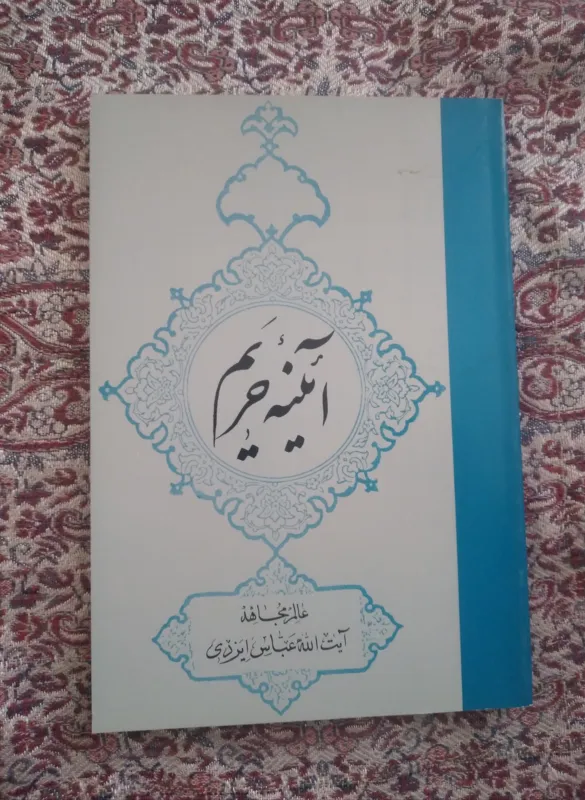 آئینهٔ حریم
عالم مجاهد
آیت الله عباس ایزدی